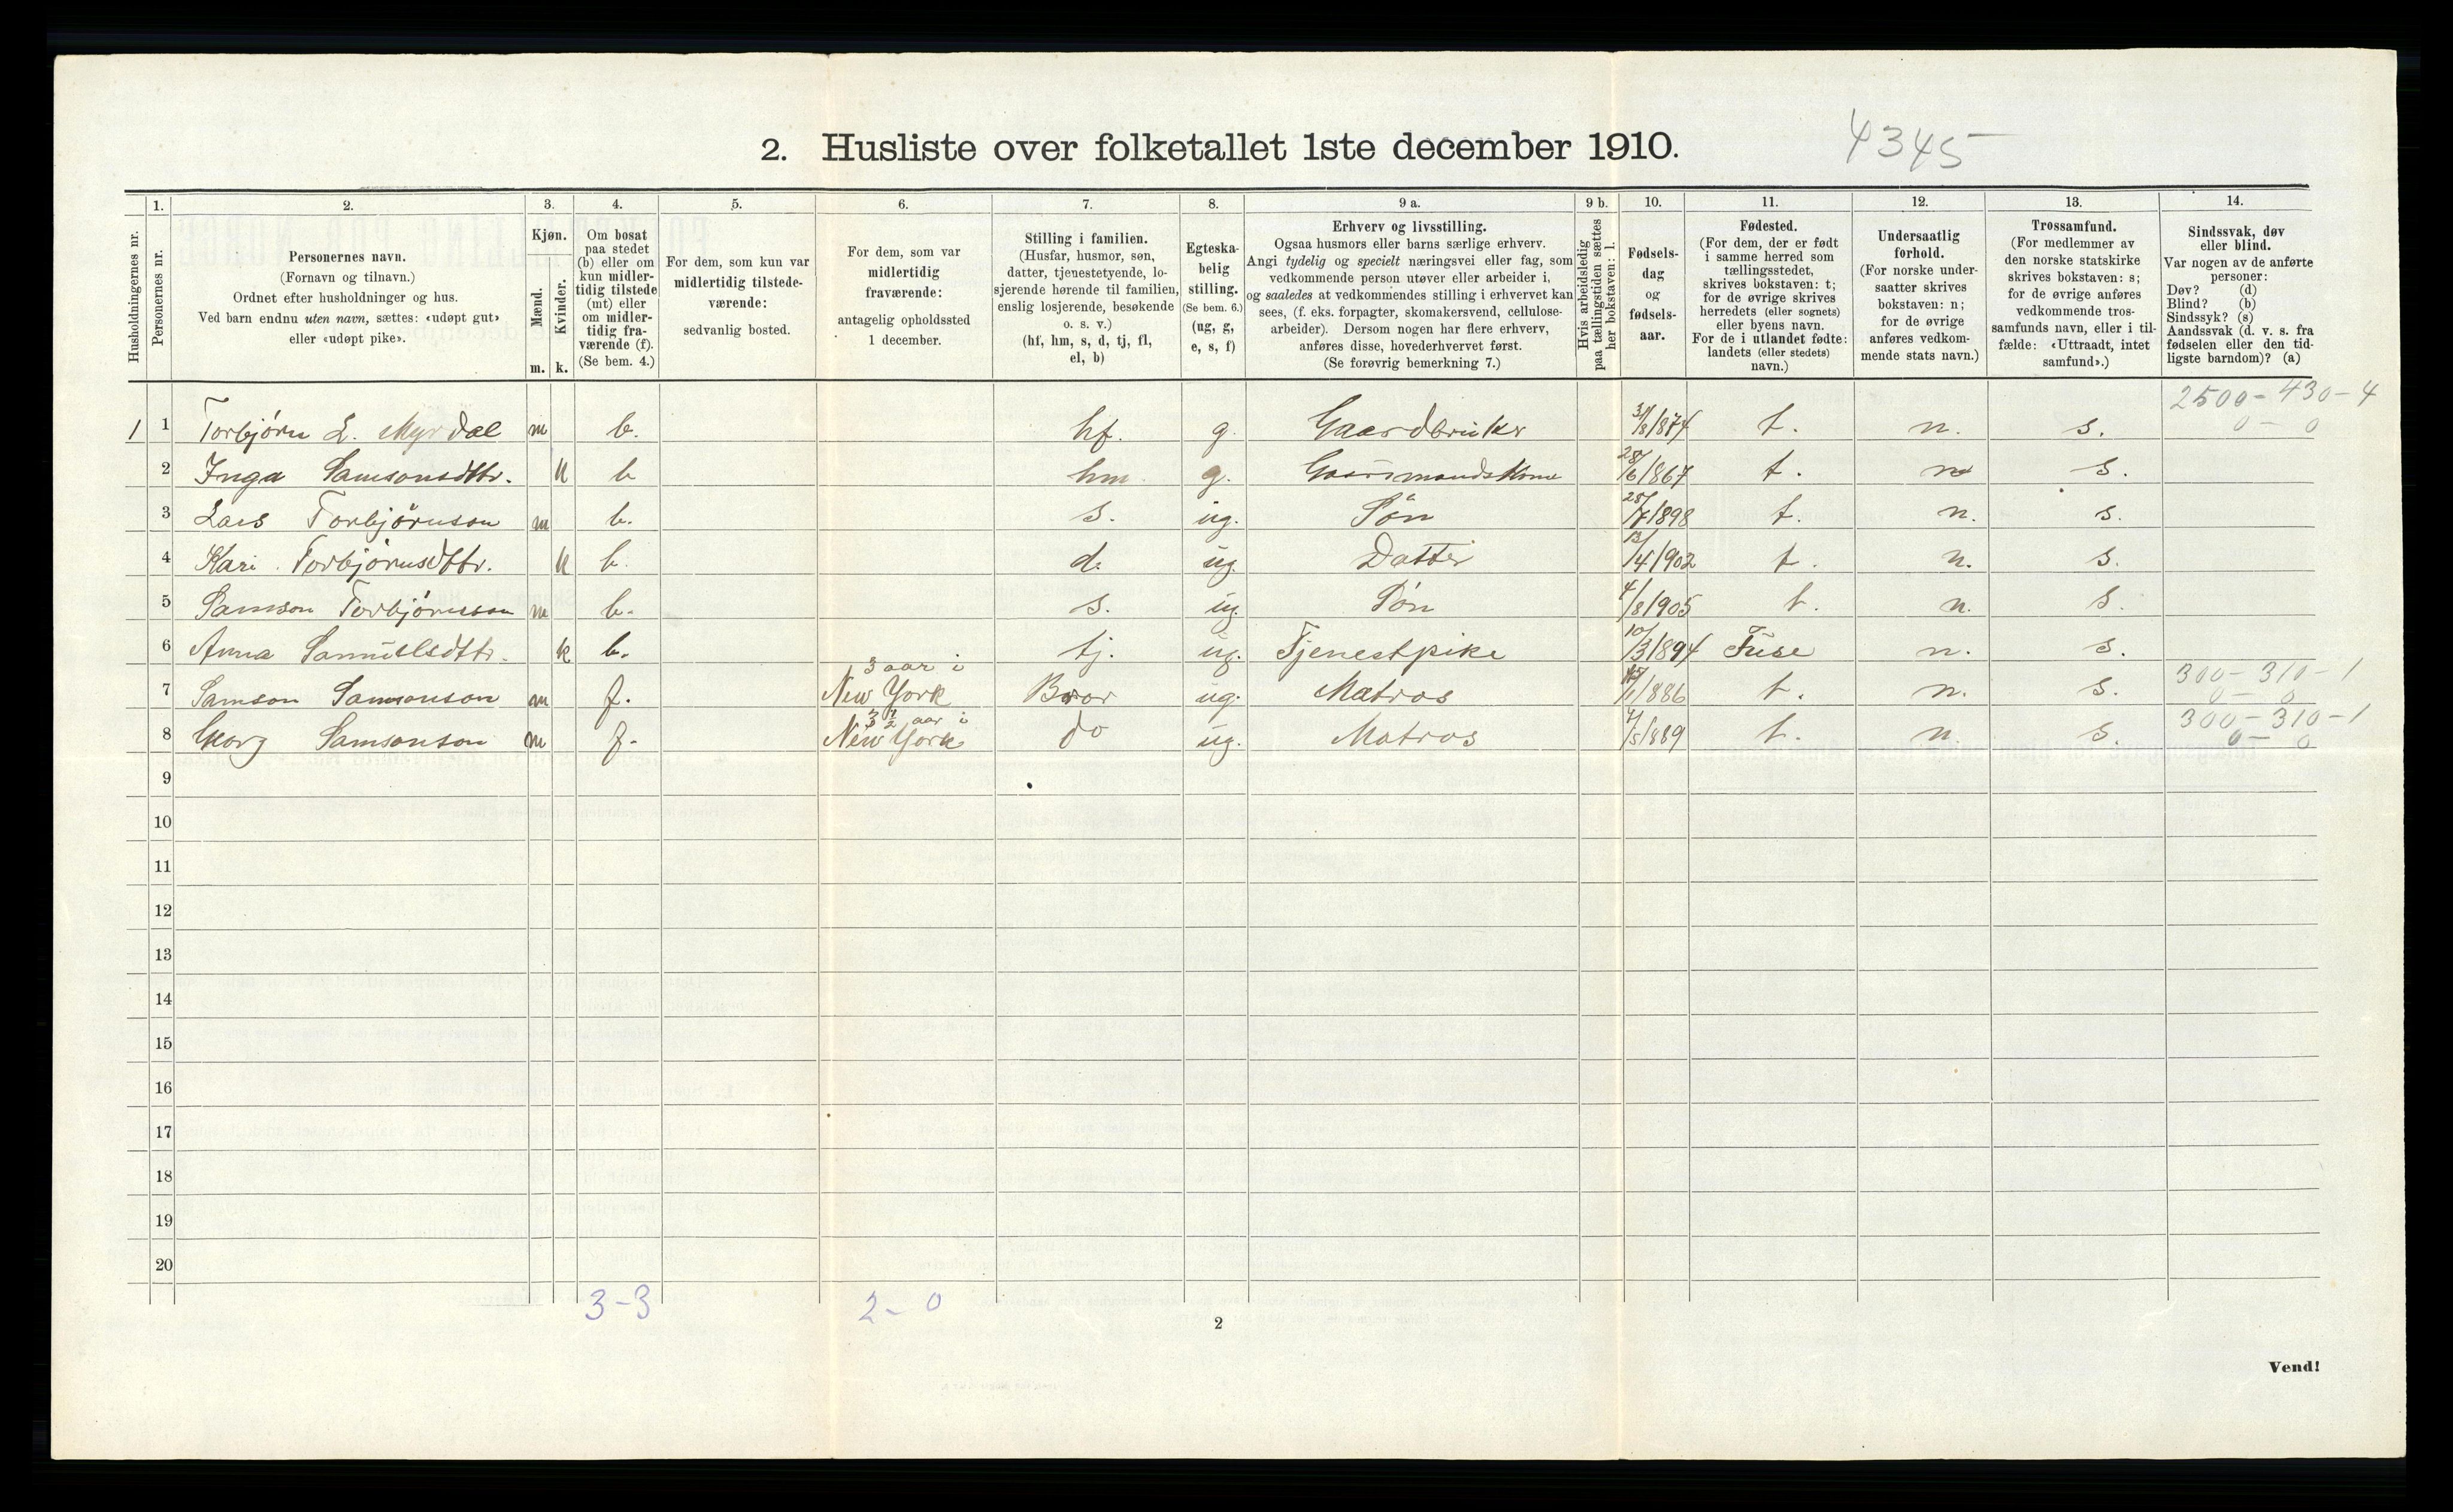 2. Husliste over folketallet 1ste december 1910.
4345
1. 2. 3. 4. 5. 6. 7. 8. 9 a. 9 b. 10. 11. 12. 13. 14.
Husholdningernes nr.
Personernes nr.
Personernes navn.
(Fornavn og tilnavn.)
Ordnet efter husholdninger og hus.
Ved barn endnu uten navn, sættes: «udøpt gut»
eller «udøpt pike».
Kjøn.
Mænd.
Kvinder.
m. k.
Om bosat
paa stedet
(b) eller om
kun midler-
tidig tilstede
(mt) eller
om midler-
tidig fra-
værende (f).
(Se bem. 4.)
For dem, som kun var
midlertidig tilstede-
værende:
sedvanlig bosted.
For dem, som var
midlertidig
fraværende:
antagelig opholdssted
1 december.
Stilling i familien.
(Husfar, husmor, søn,
datter, tjenestetyende, lo-
sjerende hørende til familien,
enslig losjerende, besøkende
o. s. v.)
(hf, hm, s, d, tj, fl,
el, b)
Egteska-
belig
stilling.
(Se bem. 6.)
(ug, g,
e, s, f)
Erhverv og livsstilling.
Ogsaa husmors eller barns særlige erhverv.
Angi tydelig og specielt næringsvei eller fag, som
vedkommende person utøver eller arbeider i,
og saaledes at vedkommendes stilling i erhvervet kan
sees, (f. eks. forpagter, skomakersvend, cellulose-
arbeider). Dersom nogen har flere erhverv,
anføres disse, hovederhvervet først.
(Se forøvrig bemerkning 7.)
Hvis arbeidsledig
paa tællingstiden sættes
her bokstaven: l.
Fødsels-
dag
og
fødsels-
aar.
Fødested.
(For dem, der er født
i samme herred som
tællingsstedet,
skrives bokstaven: t;
for de øvrige skrives
herredets (eller sognets)
eller byens navn.
For de i utlandet fødte:
landets (eller stedets)
navn.)
Undersaatlig
forhold.
(For norske under-
saatter skrives
bokstaven: n;
for de øvrige
anføres vedkom-
mende stats navn.)
Trossamfund.
(For medlemmer av
den norske statskirke
skrives bokstaven: s;
for de øvrige anføres
vedkommende tros-
samfunds navn, eller i til-
fælde: «Uttraadt, intet
samfund».)
Sindssvak, døv
eller blind.
Var nogen av de anførte
personer:
Døv? (d)
Blind? (b)
Sindssyk? (s)
Aandssvak (d. v. s. fra
fødselen eller den tid-
ligste barndom)? (a)
2500-430-4
0-0
1 1 Torbjørn L. Myrdal m b. hf. g. Gaardbruker 31/8/874 t. n. s.
2 Inga Samsonsdttr. k b hm g. Gaardmandskone 28/6/867 t. n s.
3 Lars Torbjörnson m b. s. ug. Sön 25/7/898 t. n. s.
4 Kari Torbjörnsdttr. k b. d. ug. Datter 13/4/902 t. n. s.
5 Samson Torbjörnsson m b. s. ug. Sön 4/8/905 t. n. s.
6 Anna Samuelsdttr. k b. tj. ug. Tjenestpike 10/3/894 Fuse n. s.
3 aar i
300-310-1
7 Samson Samsonson m f. New York Bror ug. Matros /1/886 t. n. s. 0-0
3 1/2 aar i
300-310-1
8 Georg Samsonson m f. New York do ug. Matros 4/5/889 t. n. s. 0-0
9
10
11
12
13
14
15
16
17
18
19
20
3-3 2-0
2
Vend!